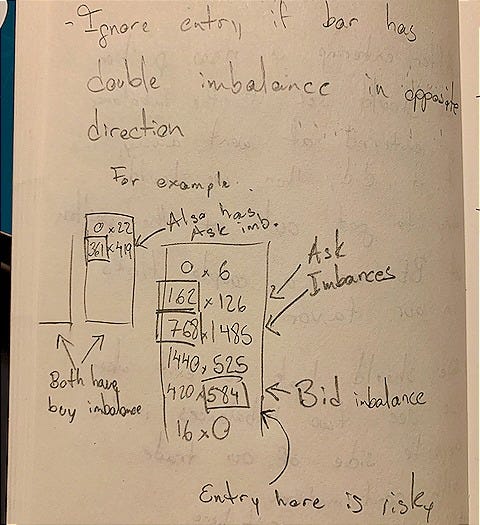 - Ignore entry if bar has
double imbalance in opposite
direction
For example.
0 x 22
361 x 419
Also has
Ask imb.
0 x 6
162 x 126
768 x 1485
1440 x 525
420 x 584
16 x 0
Ask
Imbances
Bid imbalance
Both have
buy imbalance
Entry here is risky